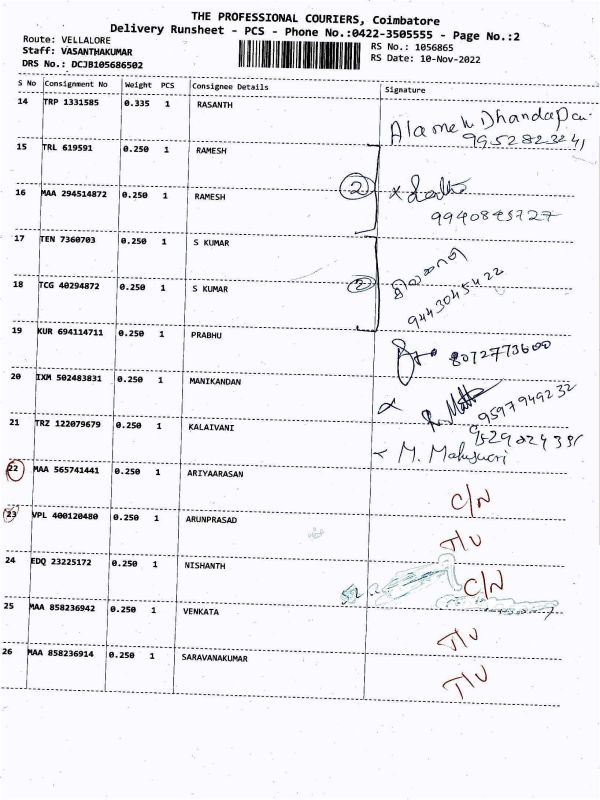 THE PROFESSIONAL COURIERS, Coimbatore
Delivery Runsheet - PCS - Phone No.:0422-3505555 - Page No.:2
Route: VELLALORE
Staff: VASANTHAKUMAR
DRS No.: DCJB105686502
RS No.: 1056865
RS Date: 10-Nov-2022
S No Consignment No Weight PCS Consignee Details Signature
14 TRP 1331585 0.335 1 RASANTH
9952823241
15 TRL 619591 0.250 1 RAMESH
16 MAA 294514872 0.250 1 RAMESH
2
9940845727
17 TEN 7360703 0.250 1 S KUMAR
18 TCG 40294872 0.250 1 S KUMAR
2
9443045422
19 KUR 694114711 0.250 1 PRABHU
8072773600
20 IXM 502483831 0.250 1 MANIKANDAN
9597949232
21 TRZ 122079679 0.250 1 KALAIVANI
M.
22 MAA 565741441 0.250 1 ARIYAARASAN
C/N
23 VPL 400120480 0.250 1 ARUNPRASAD
T/U
24 EDQ 23225172 0.250 1 NISHANTH
C/N
25 MAA 858236942 0.250 1 VENKATA
T/U
26 MAA 858236914 0.250 1 SARAVANAKUMAR
T/U